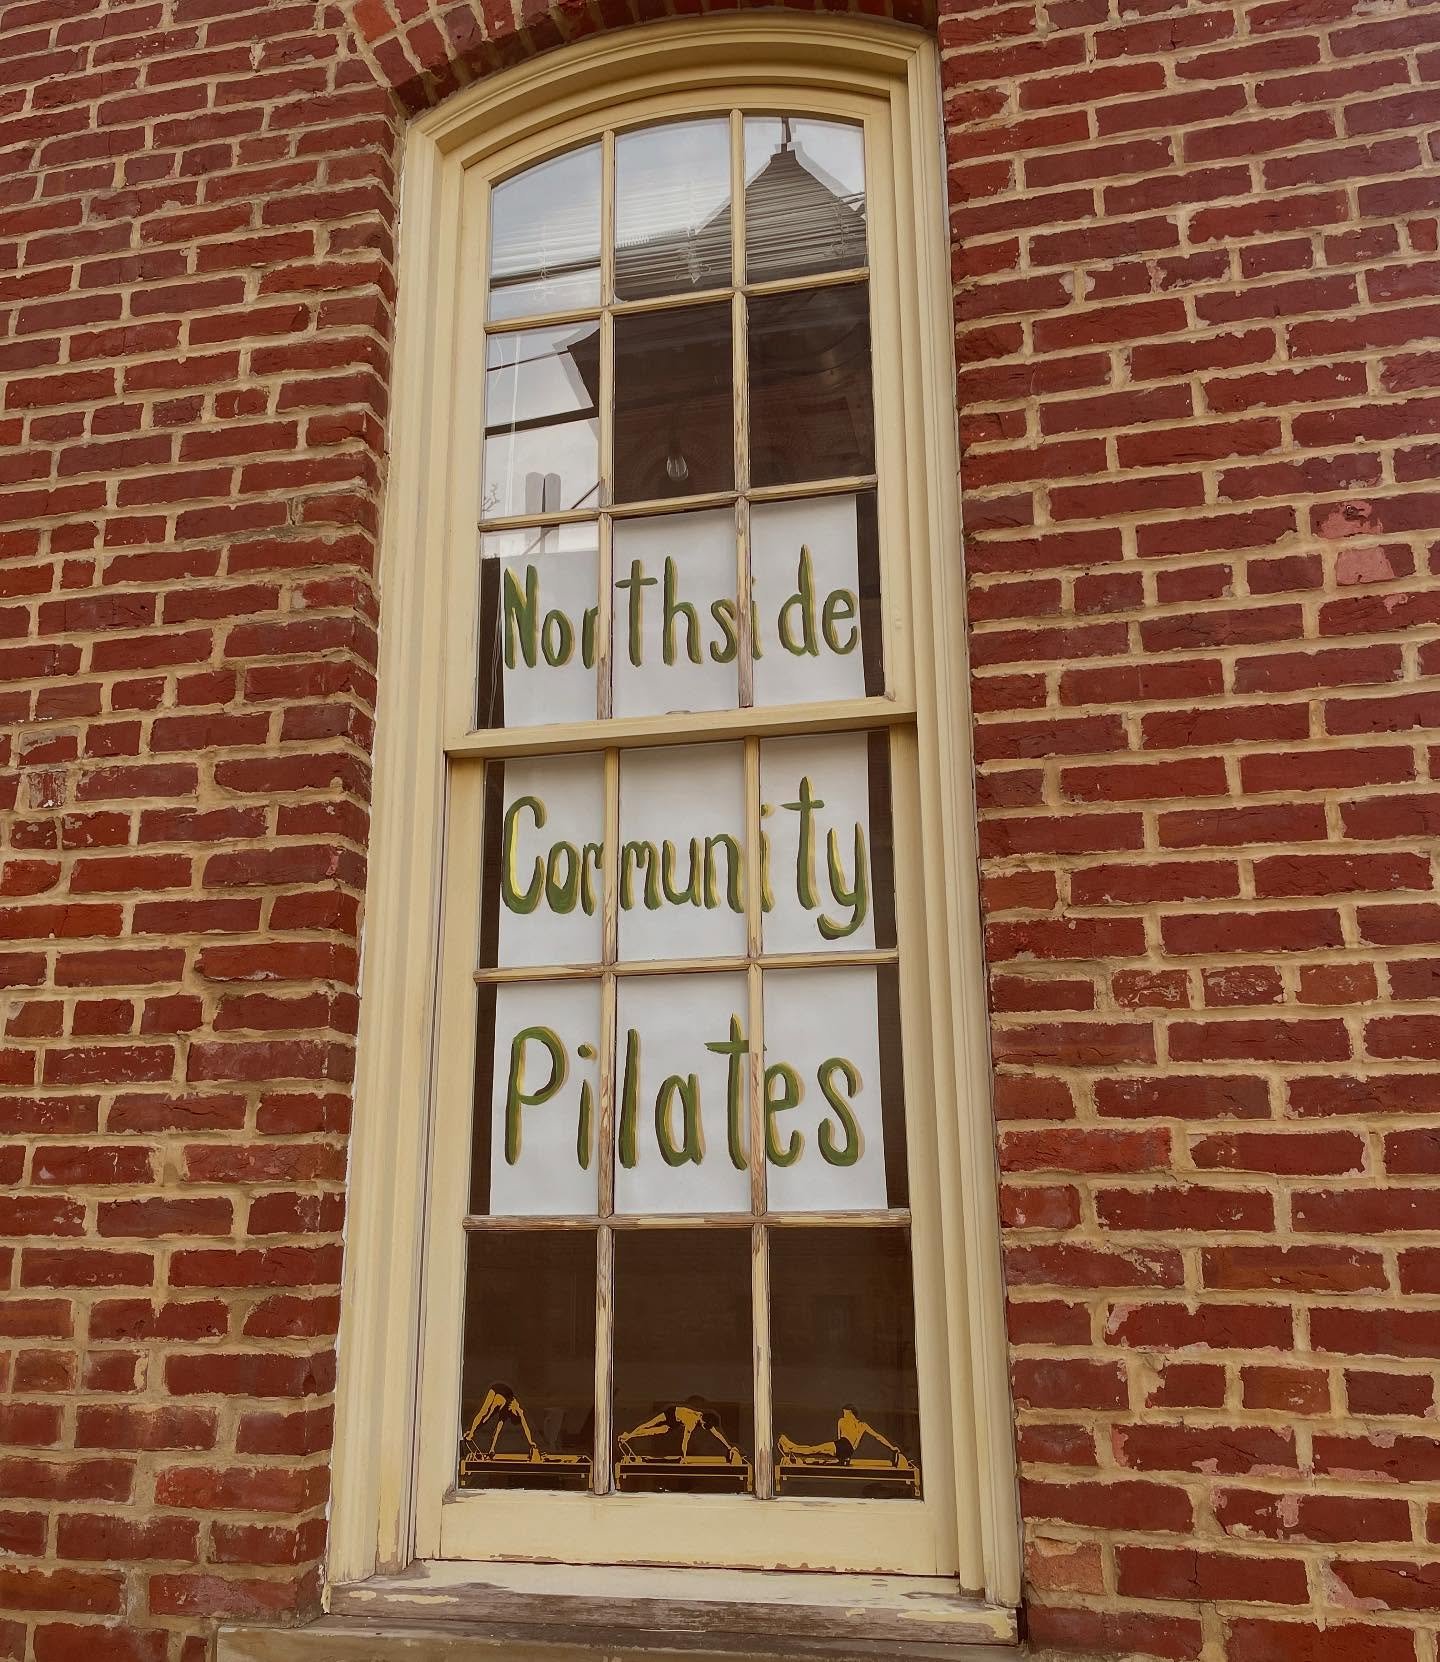 Northside
Community
Pilates